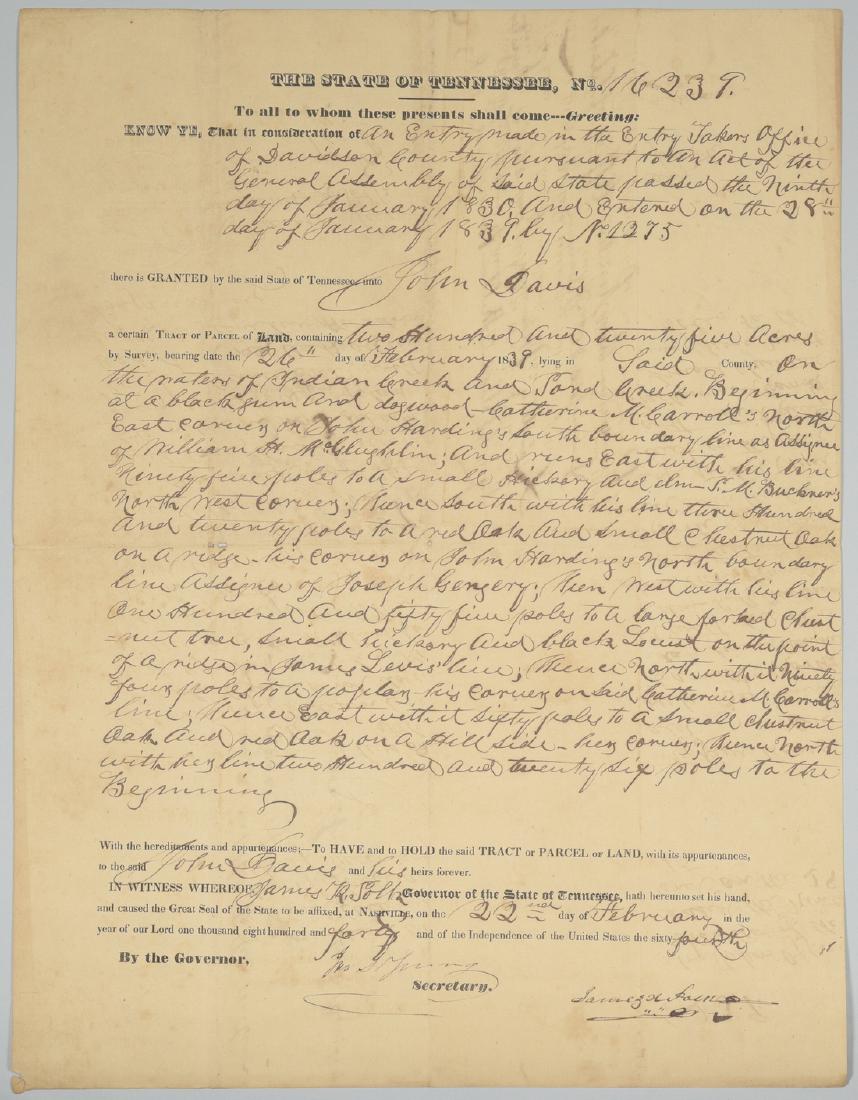 THE STATE OF TENNESSEE, No. 16239.
To all to whom these presents shall come---Greeting:
KNOW YE, That in consideration of An Entry made in the Entry Takers Office
of Davidson County pursuant to An Act of the
General Assembly of said state passed the Ninth
day of January 1830, And Entered on the 28th
day of January 1839. by No. 1275
there is GRANTED by the said State of Tennessee, unto John Davis
a certain TRACT or PARCEL of Land, containing two Hundred And twenty five Acres
by Survey, bearing date the 26th day of February 1839, lying in Said County. On
the waters of Indian Creek and Sand Creek. Beginning
at a black gum And dogwood - Catherine McCarroll's North
East corner on John Harding's south boundary line as Assignee
of William H. McGlughlin; And runs East with his line
Ninety five poles to a Small Hickory And S. M. Buckner's
North West corner; thence South with his line three Hundred
And twenty poles to a red Oak And small Chestnut Oak
on a ridge - his corner on John Harding's North boundary
line Assignee of Joseph Gengery; then West with his line
One Hundred And fifty five poles to a large forked Chest
=nut tree, small hickory And black Locust on the point
of a ridge in James Levis' line; thence North with it Ninety
four poles to a poplar - his corner on said Catherine McCarroll's
line; thence East with it sixty poles to a Small Chestnut
Oak And red Oak on a Hill side - her corner; thence North
with her line two Hundred And twenty six poles to the
Beginning
With the hereditaments and appurtenances;—To HAVE and to HOLD the said TRACT or PARCEL or LAND, with its appurtenances,
to the said John Davis and his heirs forever.
IN WITNESS WHEREOF James K. Polk Governor of the State of Tennessee, hath hereunto set his hand,
and caused the Great Seal of the State to be affixed, at NASHVILLE, on the 22nd day of February in the
year of our Lord one thousand eight hundred and forty and of the Independence of the United States the sixty fourth
By the Governor,
Jno S Young
Secretary.
James K Polk